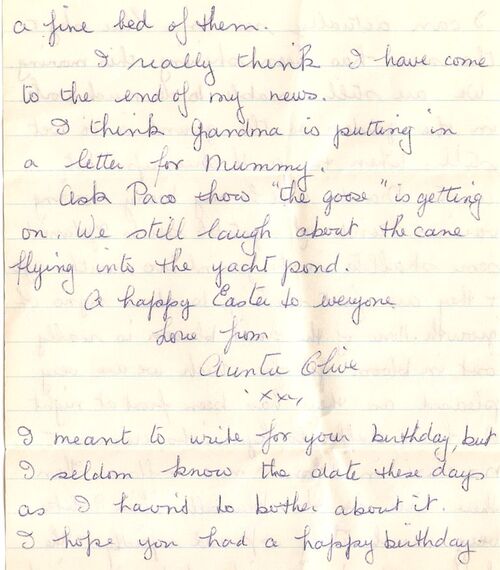 a fine bed of them.
I really think I have come
to the end of my news.
I think Grandma is putting in
a letter for Mummy.
Ask Paco how "the goose" is getting
on. We still laugh about the cane
flying into the yacht pond.
A happy Easter to everyone
Love from
Auntie Olive
xxx
I meant to write for your birthday, but
I seldom know the date these days
as I havn't to bother about it.
I hope you had a happy birthday.